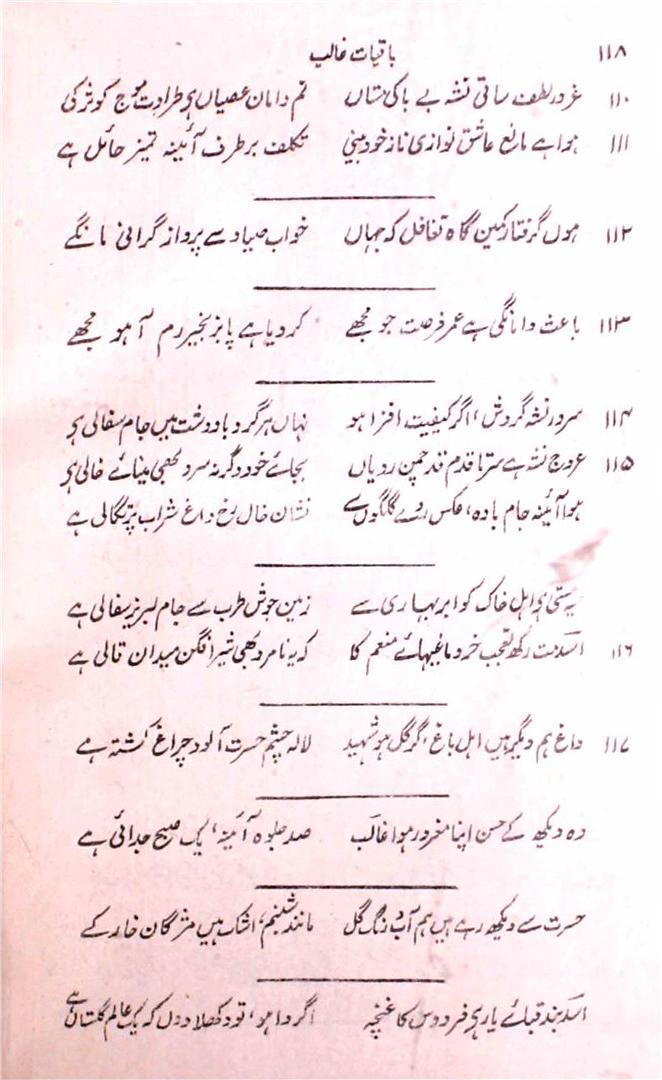 ۱۱۸ باقیات غالب
۱۱۰ غرور لطف ساقی نشہ بے باکی مستاں نم دامان عصیاں ہی طراوت موج کوثر کی
۱۱۱ ہوا ہے مانع عاشق نوازی ناز خود بینی تکلف بر طرف آئینہ تمیز حائل ہے
۱۱۲ ہوں گرفتار کمین گاہ تغافل کہ جہاں خواب صیاد سے پرواز گرانی مانگے
۱۱۳ باعث واماندگی ہے عمر فرصت جو مجھے کر دیا ہے پا بزنجیر رم آہو مجھے
۱۱۴ سرور نشہ گردش، اگر کیفیت افزا ہو نہاں ہر گرد باد دشت میں جام سفالی ہی
۱۱۵ عروج نشہ ہے سرتا قدم قد چمن رویاں بجائے خود وگرنہ سرو بھی مینائے خالی ہی
ہوا آئینہ جام بادہ، عکس روے گلگوں سے نشان خال رخ داغ شراب پرتگالی ہے
سیہ مستی ہی اہل خاک کو ابر بہاری سے زمین جوش طرب سے جام لبریز سفالی ہے
۱۱۶ اسد مت رکھ تعجب خر دماغیہائے منعم کا کہ یہ نامرد بھی شیر افگن میدان قالی ہے
۱۱۷ داغ ہم دیگر ہیں اہل باغ، گر گل ہو شہید لالہ چشم حسرت آلود چراغ کشتہ ہے
وہ دیکھ کے حسن اپنا مغرور ہوا غالب صد جلوہ آئینہ، یک صبح جدائی ہے
حسرت سے دیکھ رہے ہیں ہم آب و رنگ گل مانند شبنم، اشک ہیں مژگان خار کے
اسد بند قبائے یار ہی فردوس کا غنچہ اگر وا ہو، تو دکھلا دوں کہ یک عالم گلستاں ہے